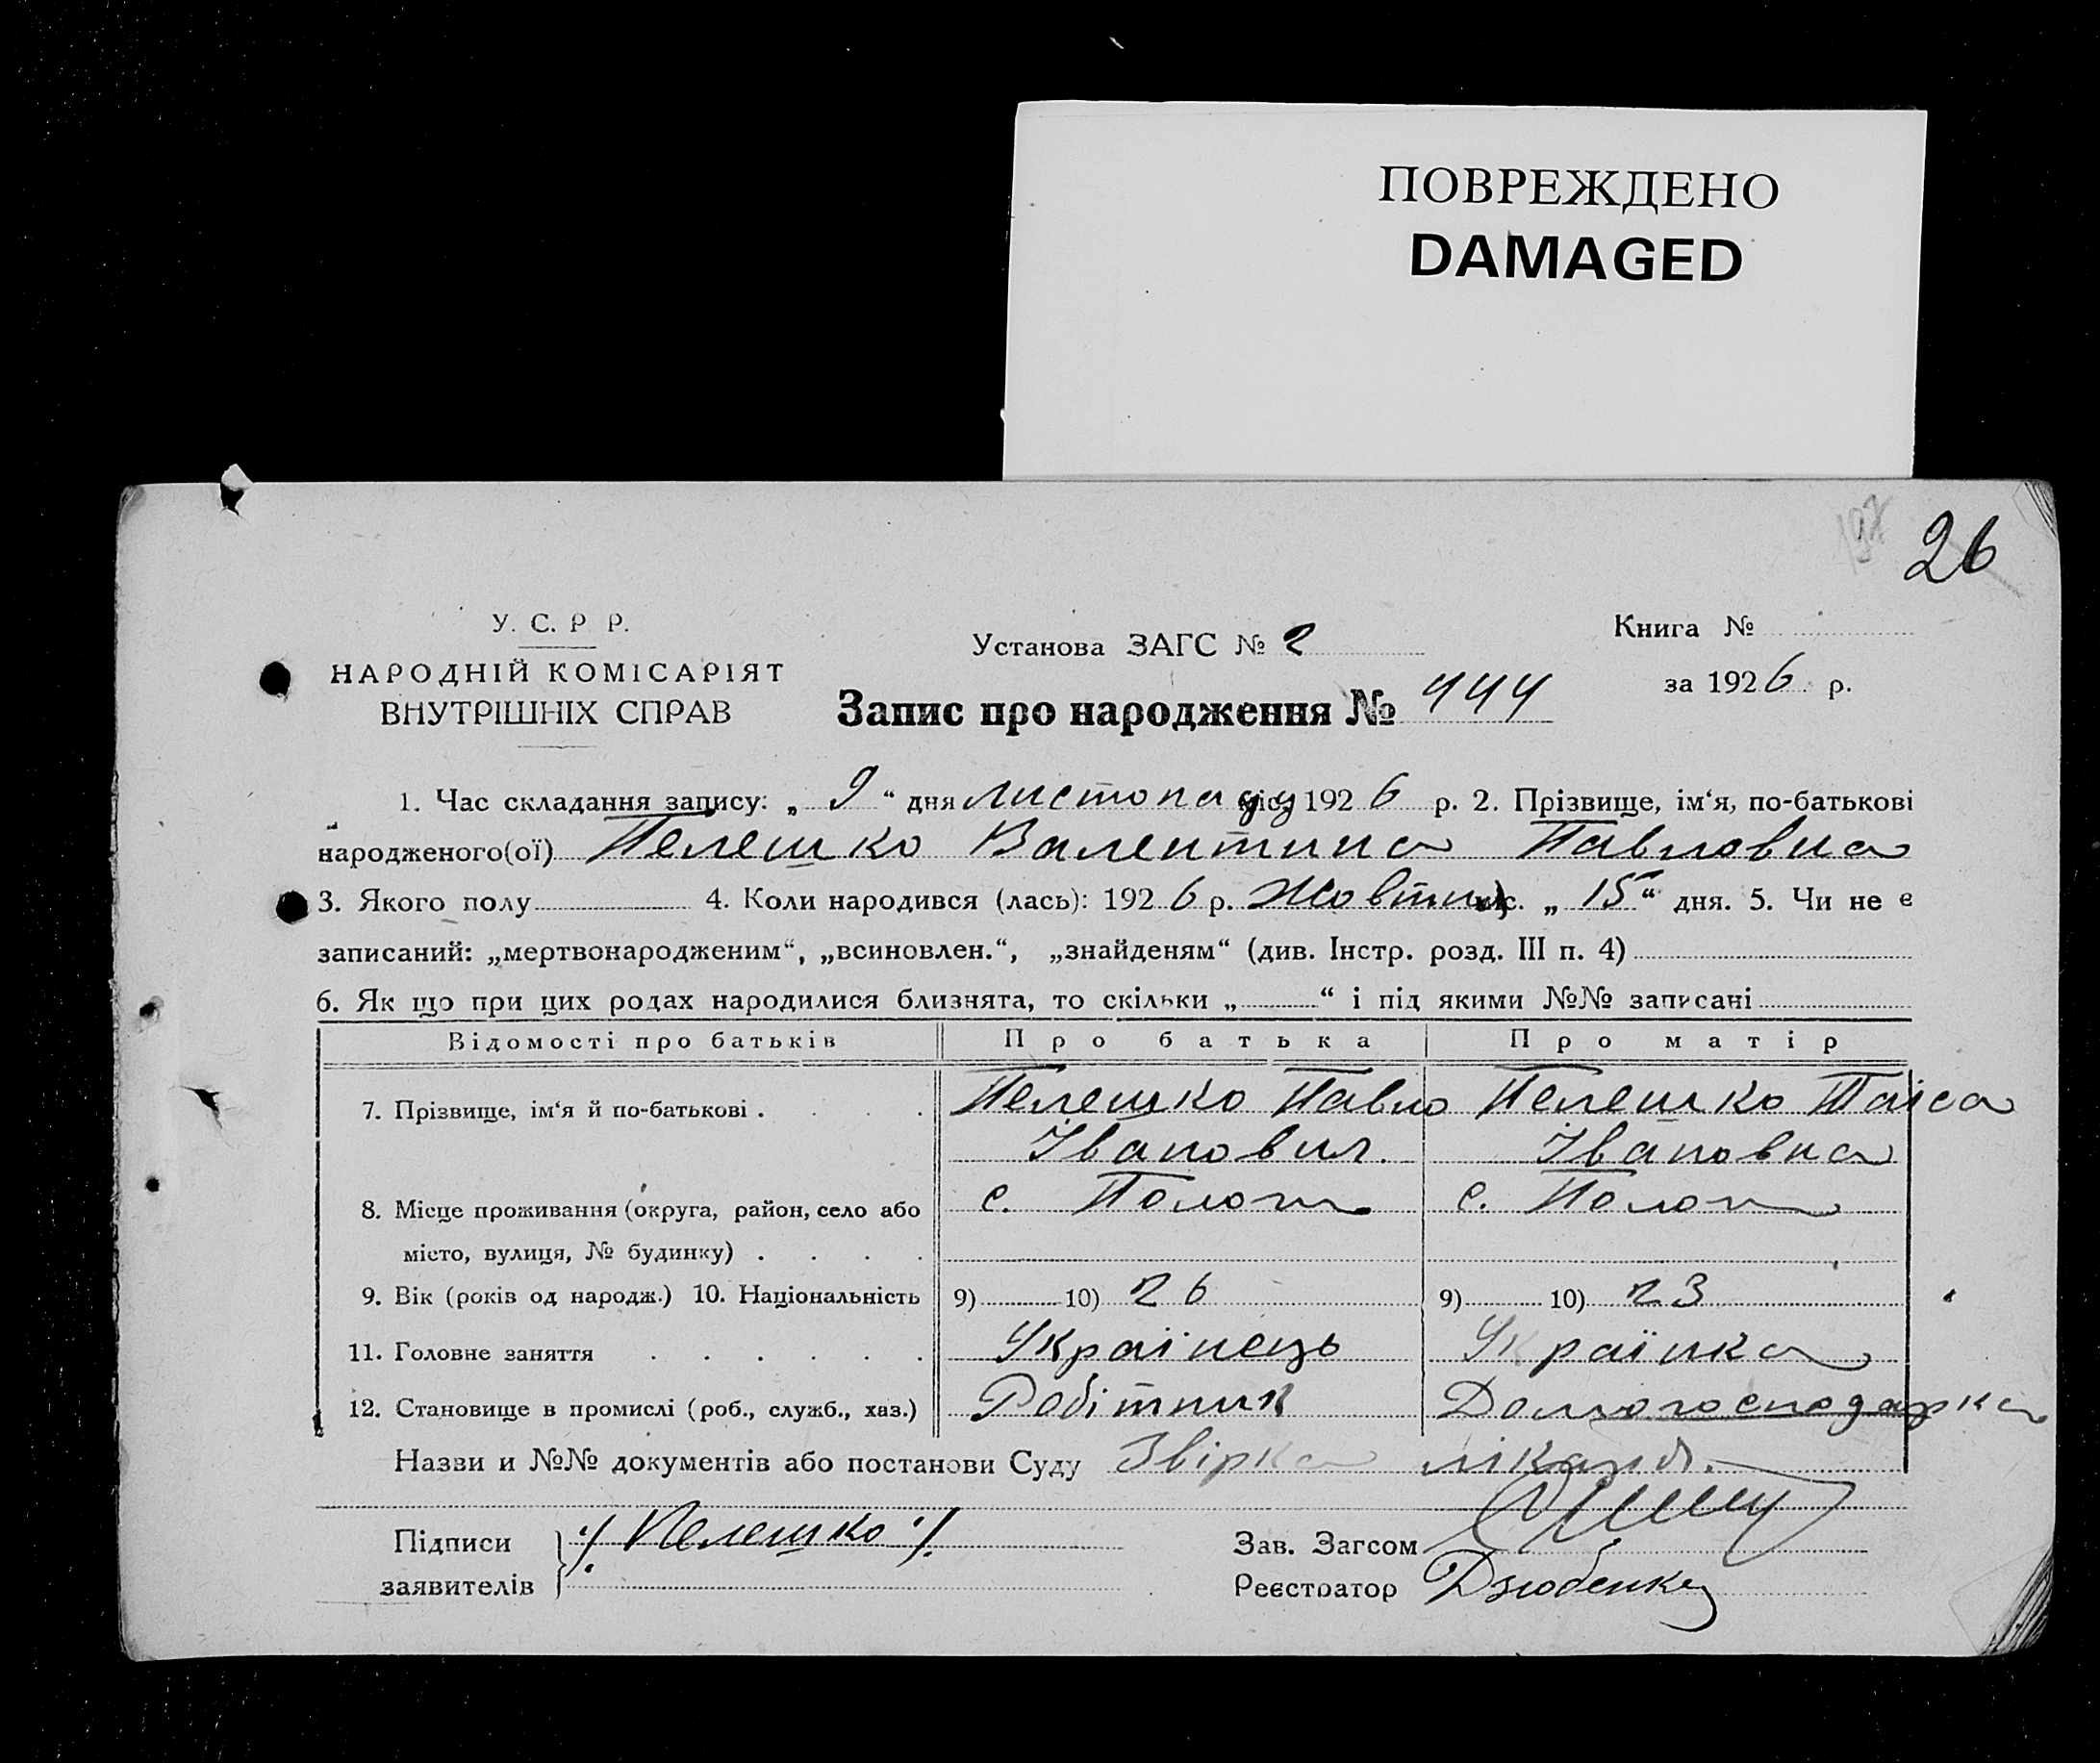 ПОВРЕЖДЕНО
DAMAGED
26
У. С. Р Р.
НАРОДНІЙ КОМІСАРІЯТ
ВНУТРІШНІХ СПРАВ
Установа ЗАГС № 2
Запис про народження № 444
Книга №
за 1926 р.
1. Час складання запису: „ 9 “ дня листопаду міс. 1926 р. 2. Прізвище, ім‘я, по-батькові
народженого(ої) Пелешко Валентина Павловна
3. Якого полу 4. Коли народився (лась): 1926 р. Жовтня міс. „ 15 “ дня. 5. Чи не є
записаний: „мертвонародженим“, „всиновлен.“, „знайденям“ (див. Інстр. розд. III п. 4)
6. Як що при цих родах народилися близнята, то скільки „ “ і під якими №№ записані
Відомості про батьків Про батька Про матір
7. Прізвище, ім‘я й по-батькові . . . . Пелешко Павло Пелешко Таїса
Іванович. Івановна
8. Місце проживання (округа, район, село або с. Пологи с. Пологи
місто, вулиця, № будинку) . . . .
9. Вік (років од народж.) 10. Національність 9) 10) 26 9) 10) 23
11. Головне заняття . . . . . . Українець Українка
12. Становище в промислі (роб., служб., хаз.) Робітник Домогосподарка
Назви и №№ документів або постанови Суду Звірка
Підписи ./. Пелешко ./. Зав. Загсом
заявителів Реєстратор Дзюбенко